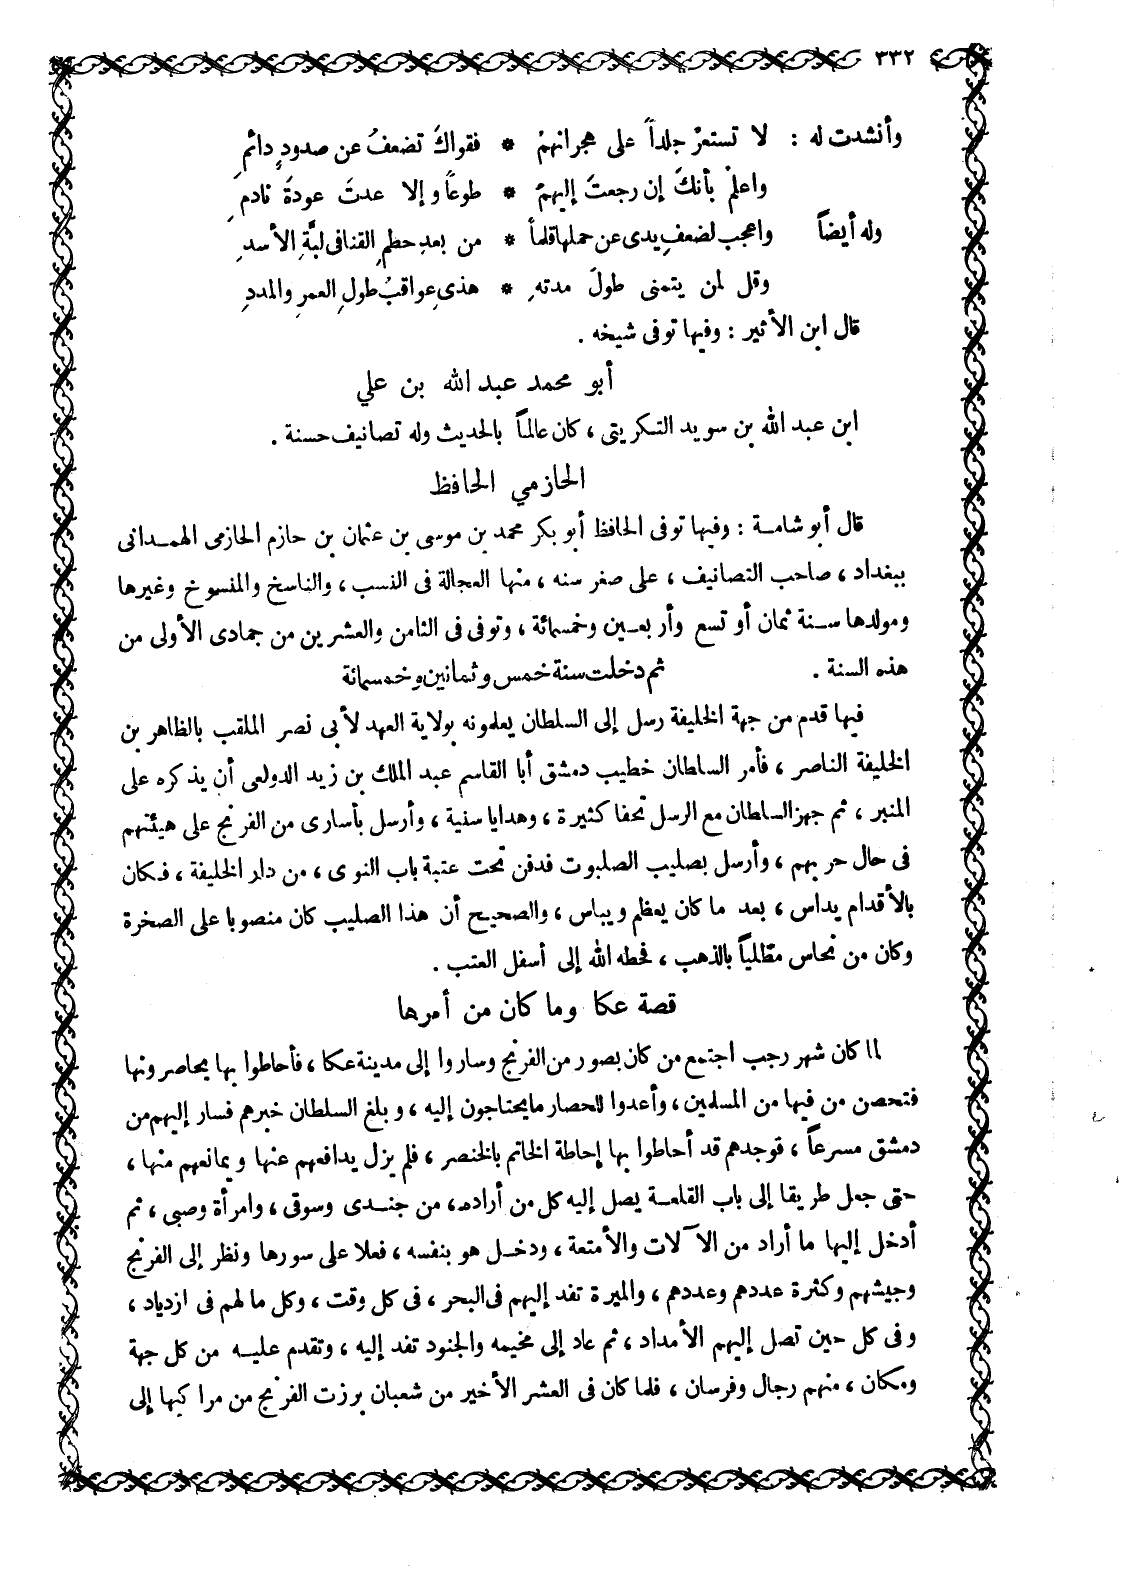 ٣٣٢
وأنشدت له : لا تستعرْ جلداً على هجرانهمْ * فقواكَ تضعفُ عن صدودٍ دائمِ
واعلمْ بأنكَ إن رجعتَ إليهمْ * طوعاً وإلا عدتَ عودةَ نادمِ
وله أيضاً واعجب لضعفِ يدى عن حملها قلماً * من بعدِ حطمِ القنا فى لبَّةِ الأسدِ
وقل لمن يتمنى طولَ مدتهِ * هذى عواقبُ طولِ العمرِ والمددِ
قال ابن الأثير : وفيها توفى شيخه .
أبو محمد عبد الله بن علي
ابن عبد الله بن سويد التكريتى ، كان عالماً بالحديث وله تصانيف حسنة .
الحازمي الحافظ
قال أبو شامة : وفيها توفى الحافظ أبو بكر محمد بن موسى بن عثمان بن حازم الحازمى الهمدانى
ببغداد ، صاحب التصانيف ، على صغر سنه ، منها العجالة فى النسب ، والناسخ والمنسوخ وغيرها
ومولدها سنة ثمان أو تسع وأربعين وخمسمائة ، وتوفى فى الثامن والعشرين من جمادى الأولى من
هذه السنة . ثم دخلت سنة خمس وثمانين وخمسمائة
فيها قدم من جهة الخليفة رسل إلى السلطان يعلمونه بولاية العهد لأبى نصر الملقب بالظاهر بن
الخليفة الناصر ، فأمر السلطان خطيب دمشق أبا القاسم عبد الملك بن زيد الدولعى أن يذكره على
المنبر ، ثم جهز السلطان مع الرسل تحفا كثيرة ، وهدايا سنية ، وأرسل بأسارى من الفرنج على هيئتهم
فى حال حربهم ، وأرسل بصليب الصلبوت فدفن تحت عتبة باب النوى ، من دار الخليفة ، فكان
بالأقدام يداس ، بعد ما كان يعظم ويباس ، والصحيح أن هذا الصليب كان منصوبا على الصخرة
وكان من نحاس مطلياً بالذهب ، فحطه الله إلى أسفل العتب .
قصة عكا وما كان من أمرها
لما كان شهر رجب اجتمع من كان بصور من الفرنج وساروا إلى مدينة عكا ، فأحاطوا بها يحاصرونها
فتحصن من فيها من المسلمين ، وأعدوا للحصار ما يحتاجون إليه ، وبلغ السلطان خبرهم فسار إليهم من
دمشق مسرعاً ، فوجدهم قد أحاطوا بها إحاطة الخاتم بالخنصر ، فلم يزل يدافعهم عنها ويمانعهم منها ،
حتى جعل طريقا إلى باب القلعة يصل إليه كل من أراده ، من جندى وسوقى ، وامرأة وصبى ، ثم
أدخل إليها ما أراد من الآلات والأمتعة ، ودخل هو بنفسه ، فعلا على سورها ونظر إلى الفرنج
وجيشهم وكثرة عددهم وعددهم ، والميرة تفد إليهم فى البحر ، فى كل وقت ، وكل ما لهم فى ازدياد ،
وفى كل حين تصل إليهم الأمداد ، ثم عاد إلى مخيمه والجنود تفد إليه ، وتقدم عليه من كل جهة
ومكان ، منهم رجال وفرسان ، فلما كان فى العشر الأخير من شعبان برزت الفرنج من مراكبها إلى